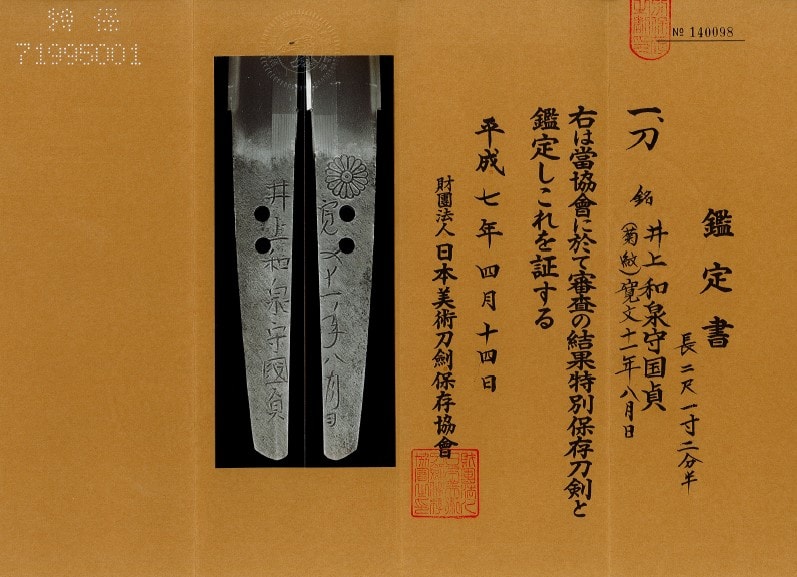 特保
71995001
№ 140098
鑑定書
長二尺一寸二分半
一、刀 銘 井上和泉守国貞
(菊紋)寛文十一年八月日
右は當協會に於て審査の結果特別保存刀剣と
鑑定しこれを証する
平成七年四月十四日
財團法人日本美術刀劍保存協會
寛文十一年八月日
井上和泉守國貞